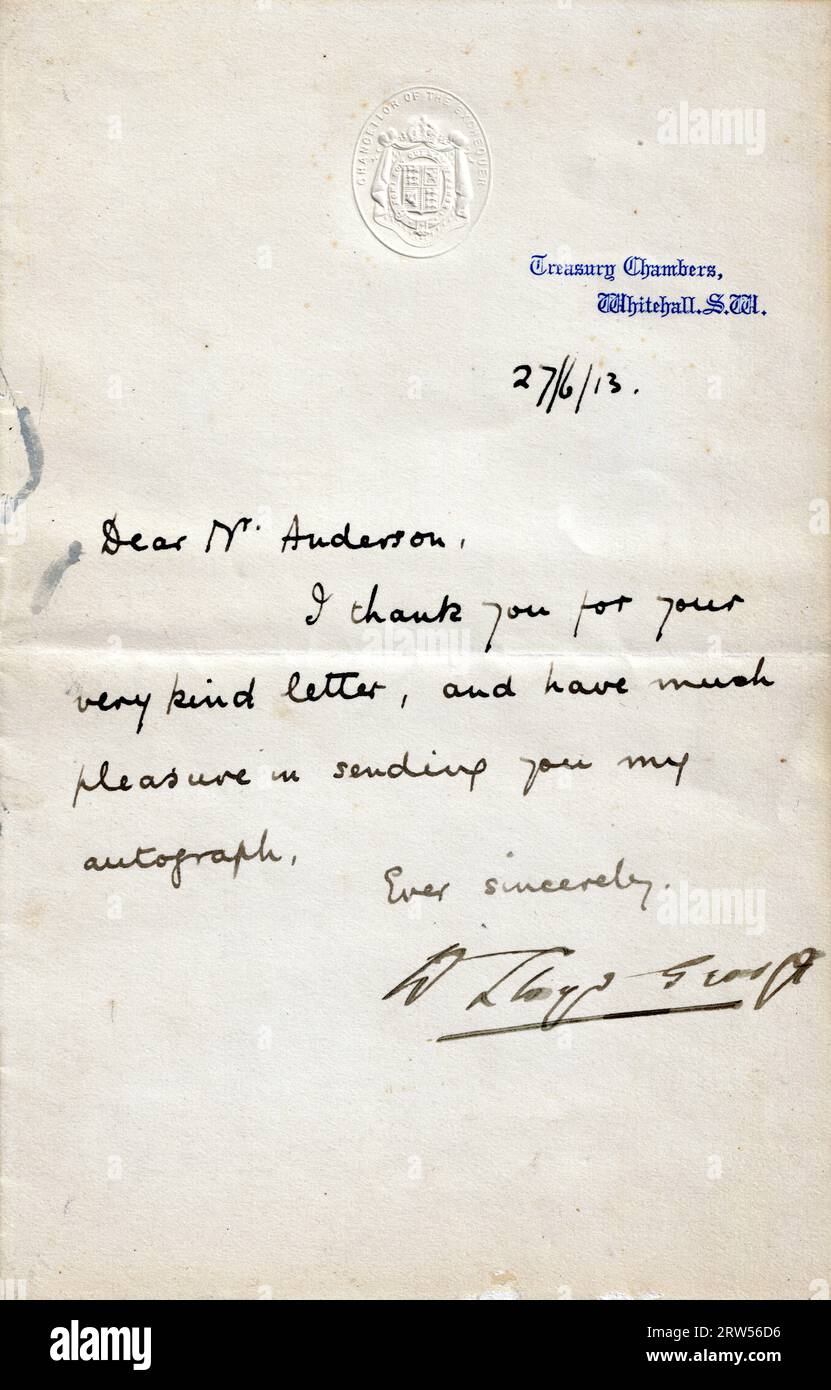 CHANCELLOR OF THE EXCHEQUER
Treasury Chambers,
Whitehall. S.W.
27/6/13.
Dear Mr. Anderson,
I thank you for your
very kind letter, and have much
pleasure in sending you my
autograph.
Ever sincerely.
D Lloyd George
alamy
alamy
alamy
alamy
Image ID: 2RW56D6
www.alamy.com